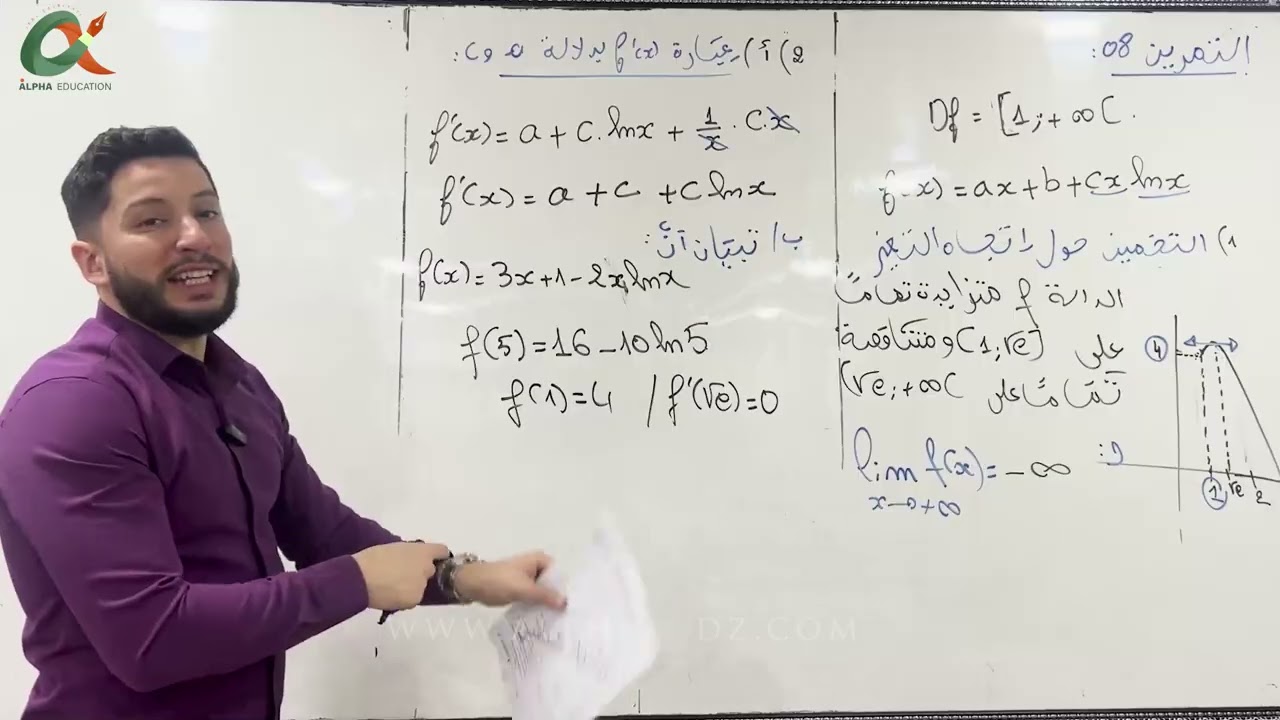 ALPHA EDUCATION
التمرين 08:
Df = [1; +∞[.
f(x) = ax + b + cx lnx
1) التخمين حول اتجاه التغير
الدالة f متزايدة تمامًا
على [1; √e] ومتناقصة
تمامًا على [√e; +∞[
و: lim f(x) = -∞
x→+∞
4
1 √e 2
2) أ) عبارة f'(x) بدلالة a و c:
f'(x) = a + c.lnx + 1/x . c.x
f'(x) = a + c + c lnx
ب/ تبيان أنّ:
f(x) = 3x + 1 - 2x lnx
f(5) = 16 - 10 ln5
f(1) = 4 / f'(√e) = 0